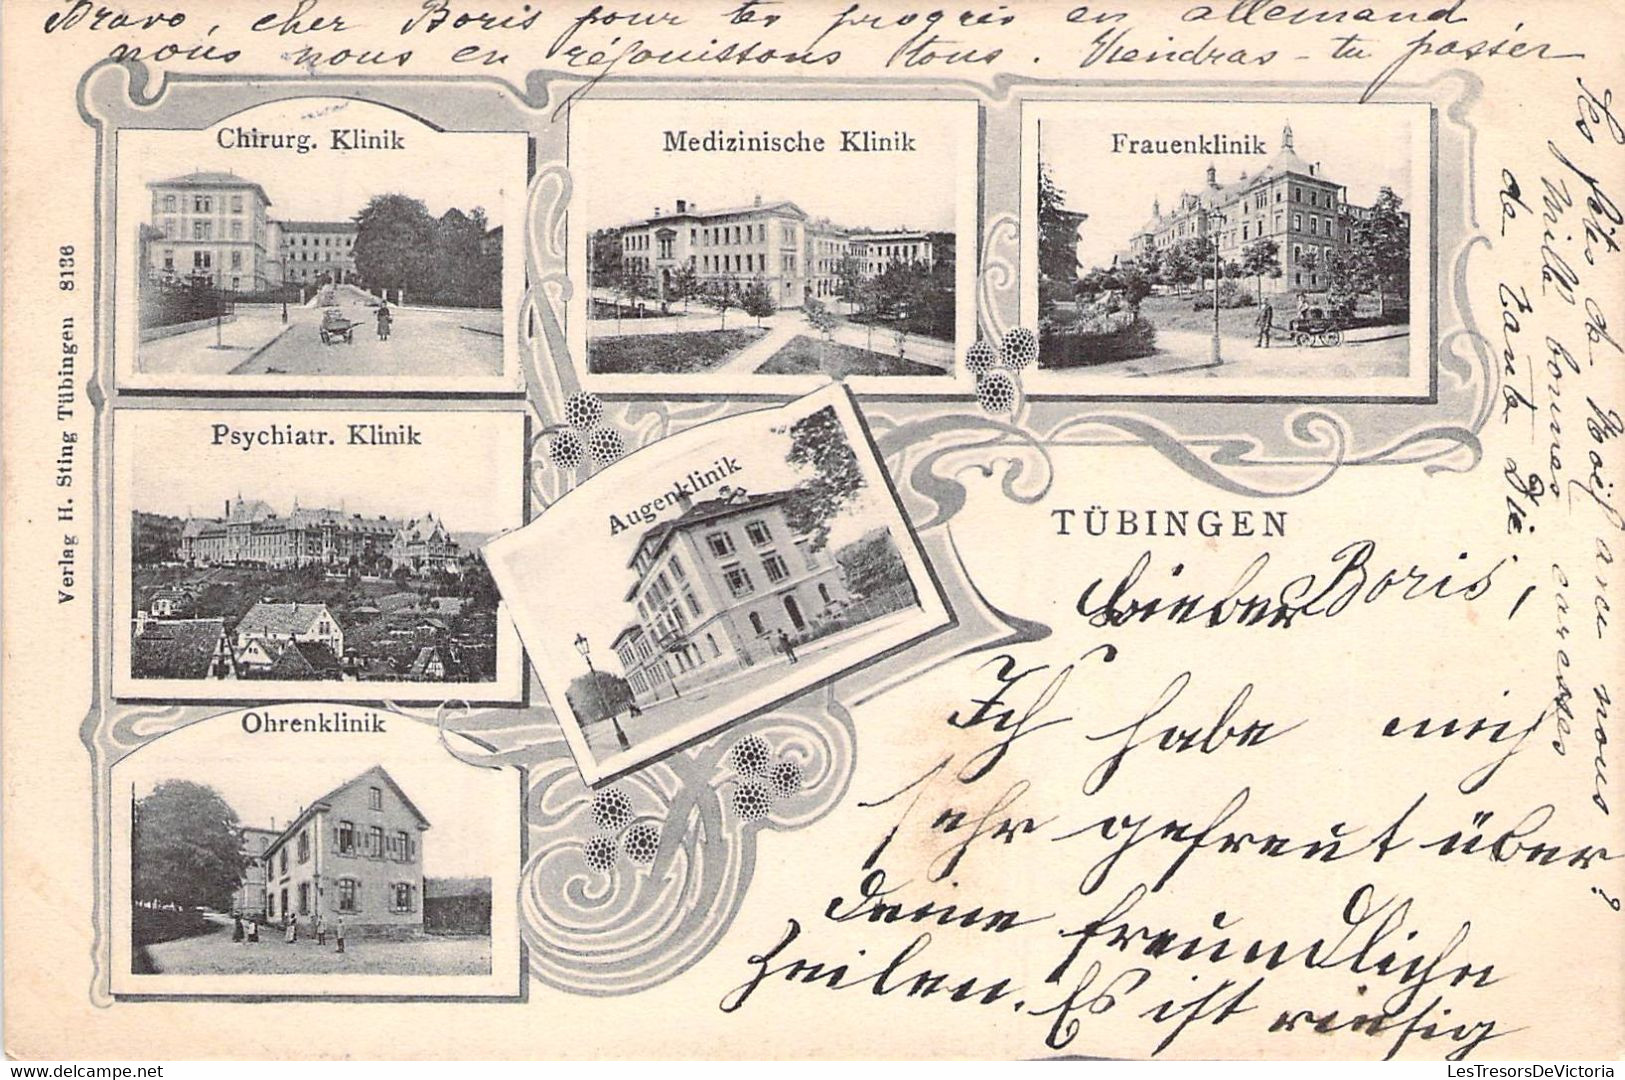 Bravo, cher Boris pour tes progrès en allemand,
nous nous en réjouissons tous. Viendras-tu passer
les fêtes de Noël avec nous?
Mille bonnes caresses
de Tante Die.
Chirurg. Klinik
Medizinische Klinik
Frauenklinik
Psychiatr. Klinik
Augenklinik
Ohrenklinik
TÜBINGEN
Verlag H. Sting Tübingen 8136
Lieber Boris,
Ich habe mich
sehr gefreut über
Deine freundliche
Zeilen. Es ist riesig
LesTresorsDeVictoria
delcampe.net